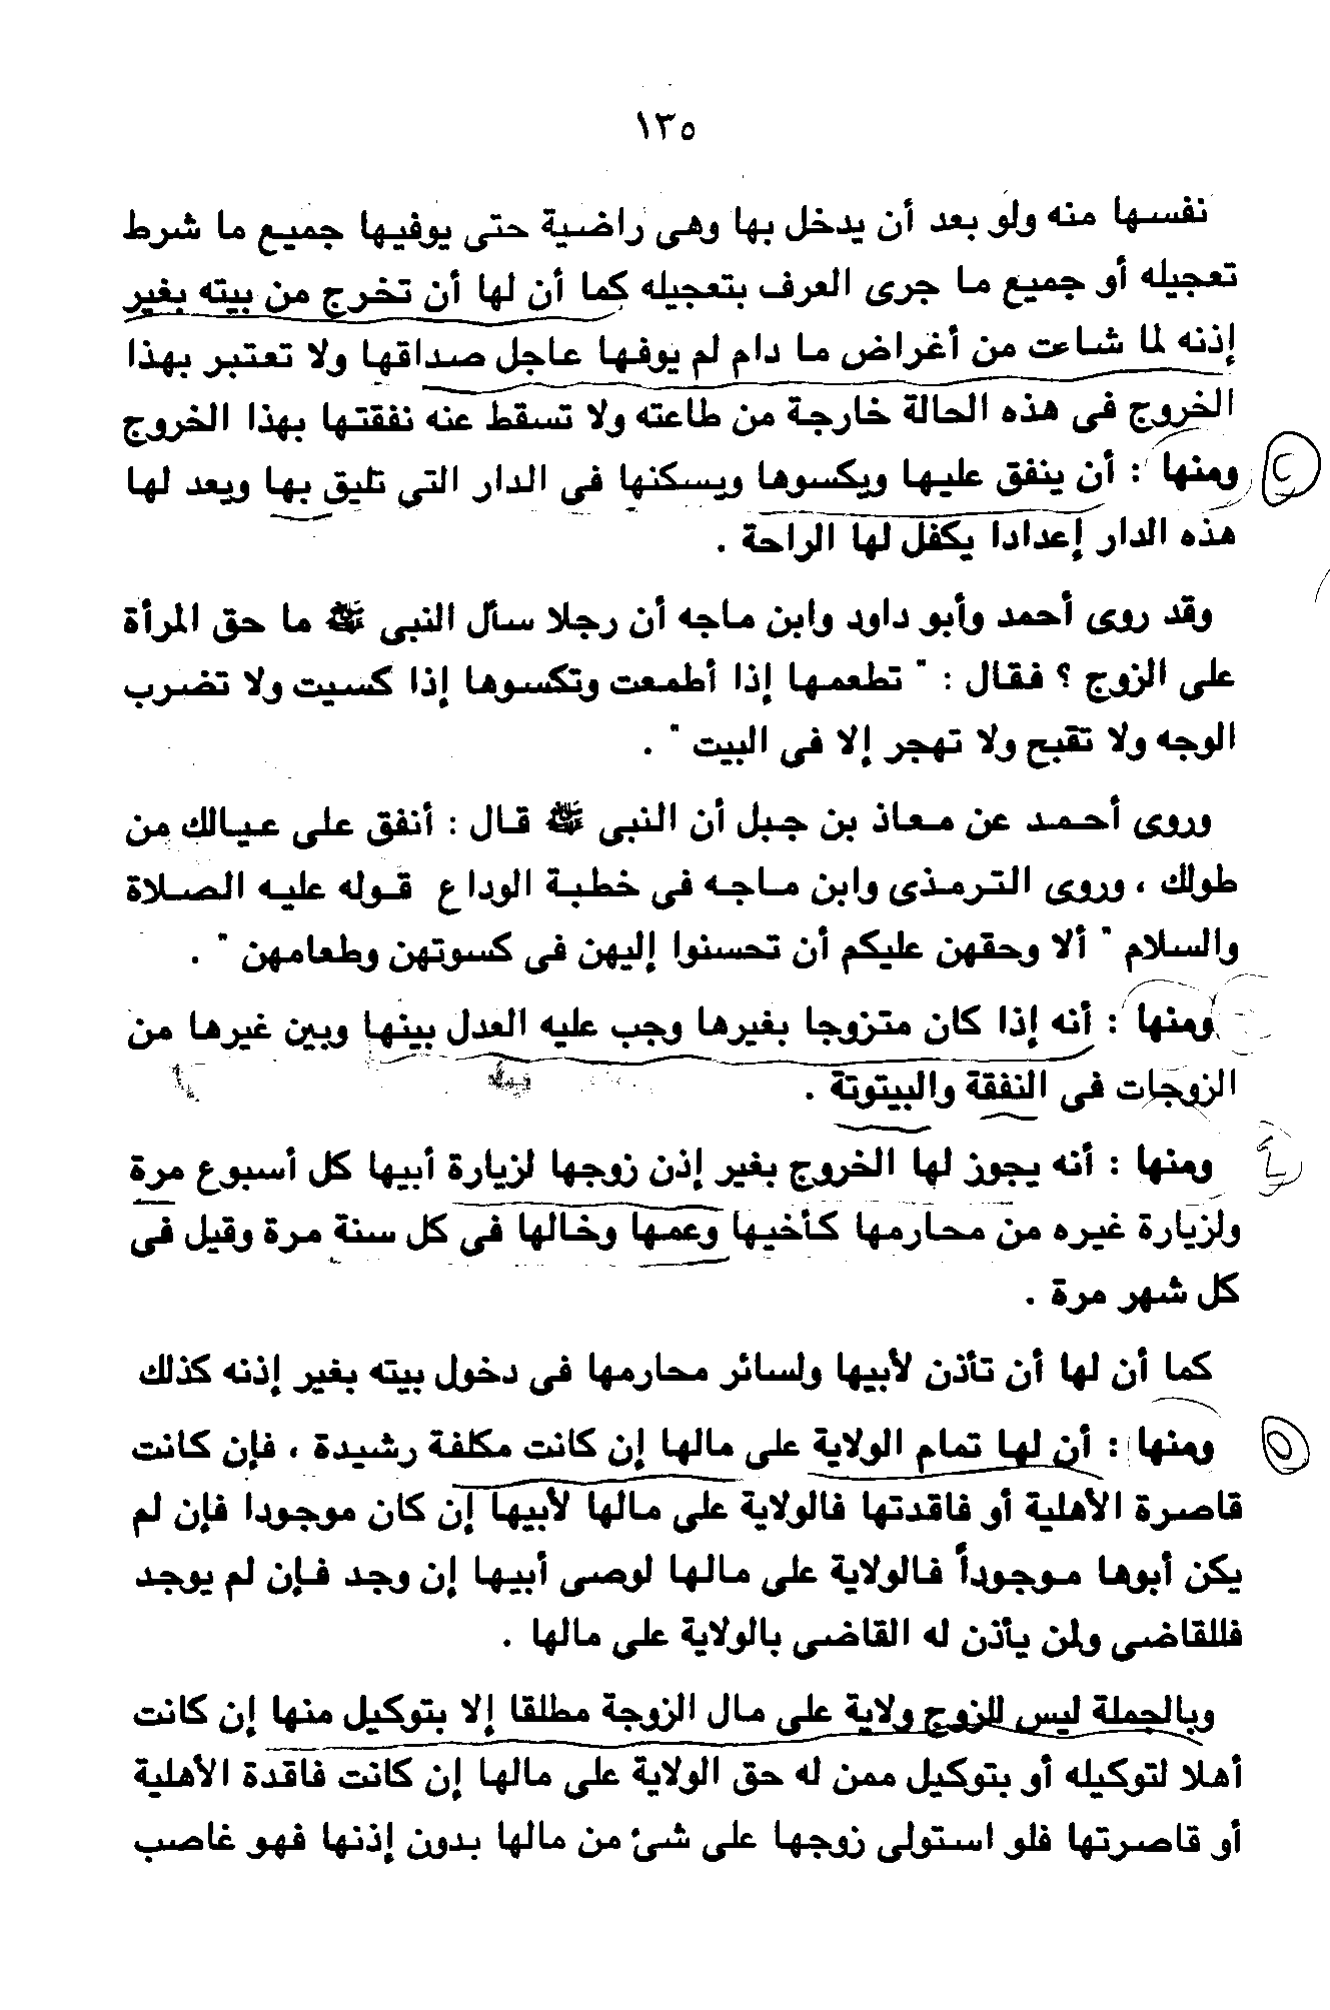 ١٣٥
نفسها منه ولو بعد أن يدخل بها وهى راضية حتى يوفيها جميع ما شرط
تعجيله أو جميع ما جرى العرف بتعجيله كما أن لها أن تخرج من بيته بغير
إذنه لما شاءت من أغراض ما دام لم يوفها عاجل صداقها ولا تعتبر بهذا
الخروج فى هذه الحالة خارجة من طاعته ولا تسقط عنه نفقتها بهذا الخروج
ومنها : أن ينفق عليها ويكسوها ويسكنها فى الدار التي تليق بها ويعد لها
هذه الدار إعدادا يكفل لها الراحة .
وقد روى أحمد وأبو داود وابن ماجه أن رجلا سأل النبى ﷺ ما حق المرأة
على الزوج ؟ فقال : " تطعمها إذا أطمعت وتكسوها إذا كسيت ولا تضرب
الوجه ولا تقبح ولا تهجر إلا فى البيت " .
وروى أحمد عن معاذ بن جبل أن النبى ﷺ قال : أنفق على عيالك من
طولك ، وروى الترمذى وابن ماجه فى خطبة الوداع قوله عليه الصلاة
والسلام " ألا وحقهن عليكم أن تحسنوا إليهن فى كسوتهن وطعامهن " .
ومنها : أنه إذا كان متزوجا بغيرها وجب عليه العدل بينها وبين غيرها من
الزوجات فى النفقة والبيتوتة .
ومنها : أنه يجوز لها الخروج بغير إذن زوجها لزيارة أبيها كل أسبوع مرة
ولزيارة غيره من محارمها كأخيها وعمها وخالها فى كل سنة مرة وقيل فى
كل شهر مرة .
كما أن لها أن تأذن لأبيها ولسائر محارمها فى دخول بيته بغير إذنه كذلك
ومنها : أن لها تمام الولاية على مالها إن كانت مكلفة رشيدة ، فإن كانت
قاصرة الأهلية أو فاقدتها فالولاية على مالها لأبيها إن كان موجودا فإن لم
يكن أبوها موجوداً فالولاية على مالها لوصى أبيها إن وجد فإن لم يوجد
فللقاضى ولمن يأذن له القاضى بالولاية على مالها .
وبالجملة ليس للزوج ولاية على مال الزوجة مطلقا إلا بتوكيل منها إن كانت
أهلا لتوكيله أو بتوكيل ممن له حق الولاية على مالها إن كانت فاقدة الأهلية
أو قاصرتها فلو استولى زوجها على شئ من مالها بدون إذنها فهو غاصب